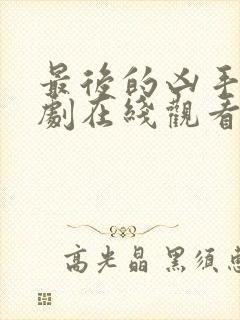 最後的凶手
劇在綫觀看
高光晶 黑須惠